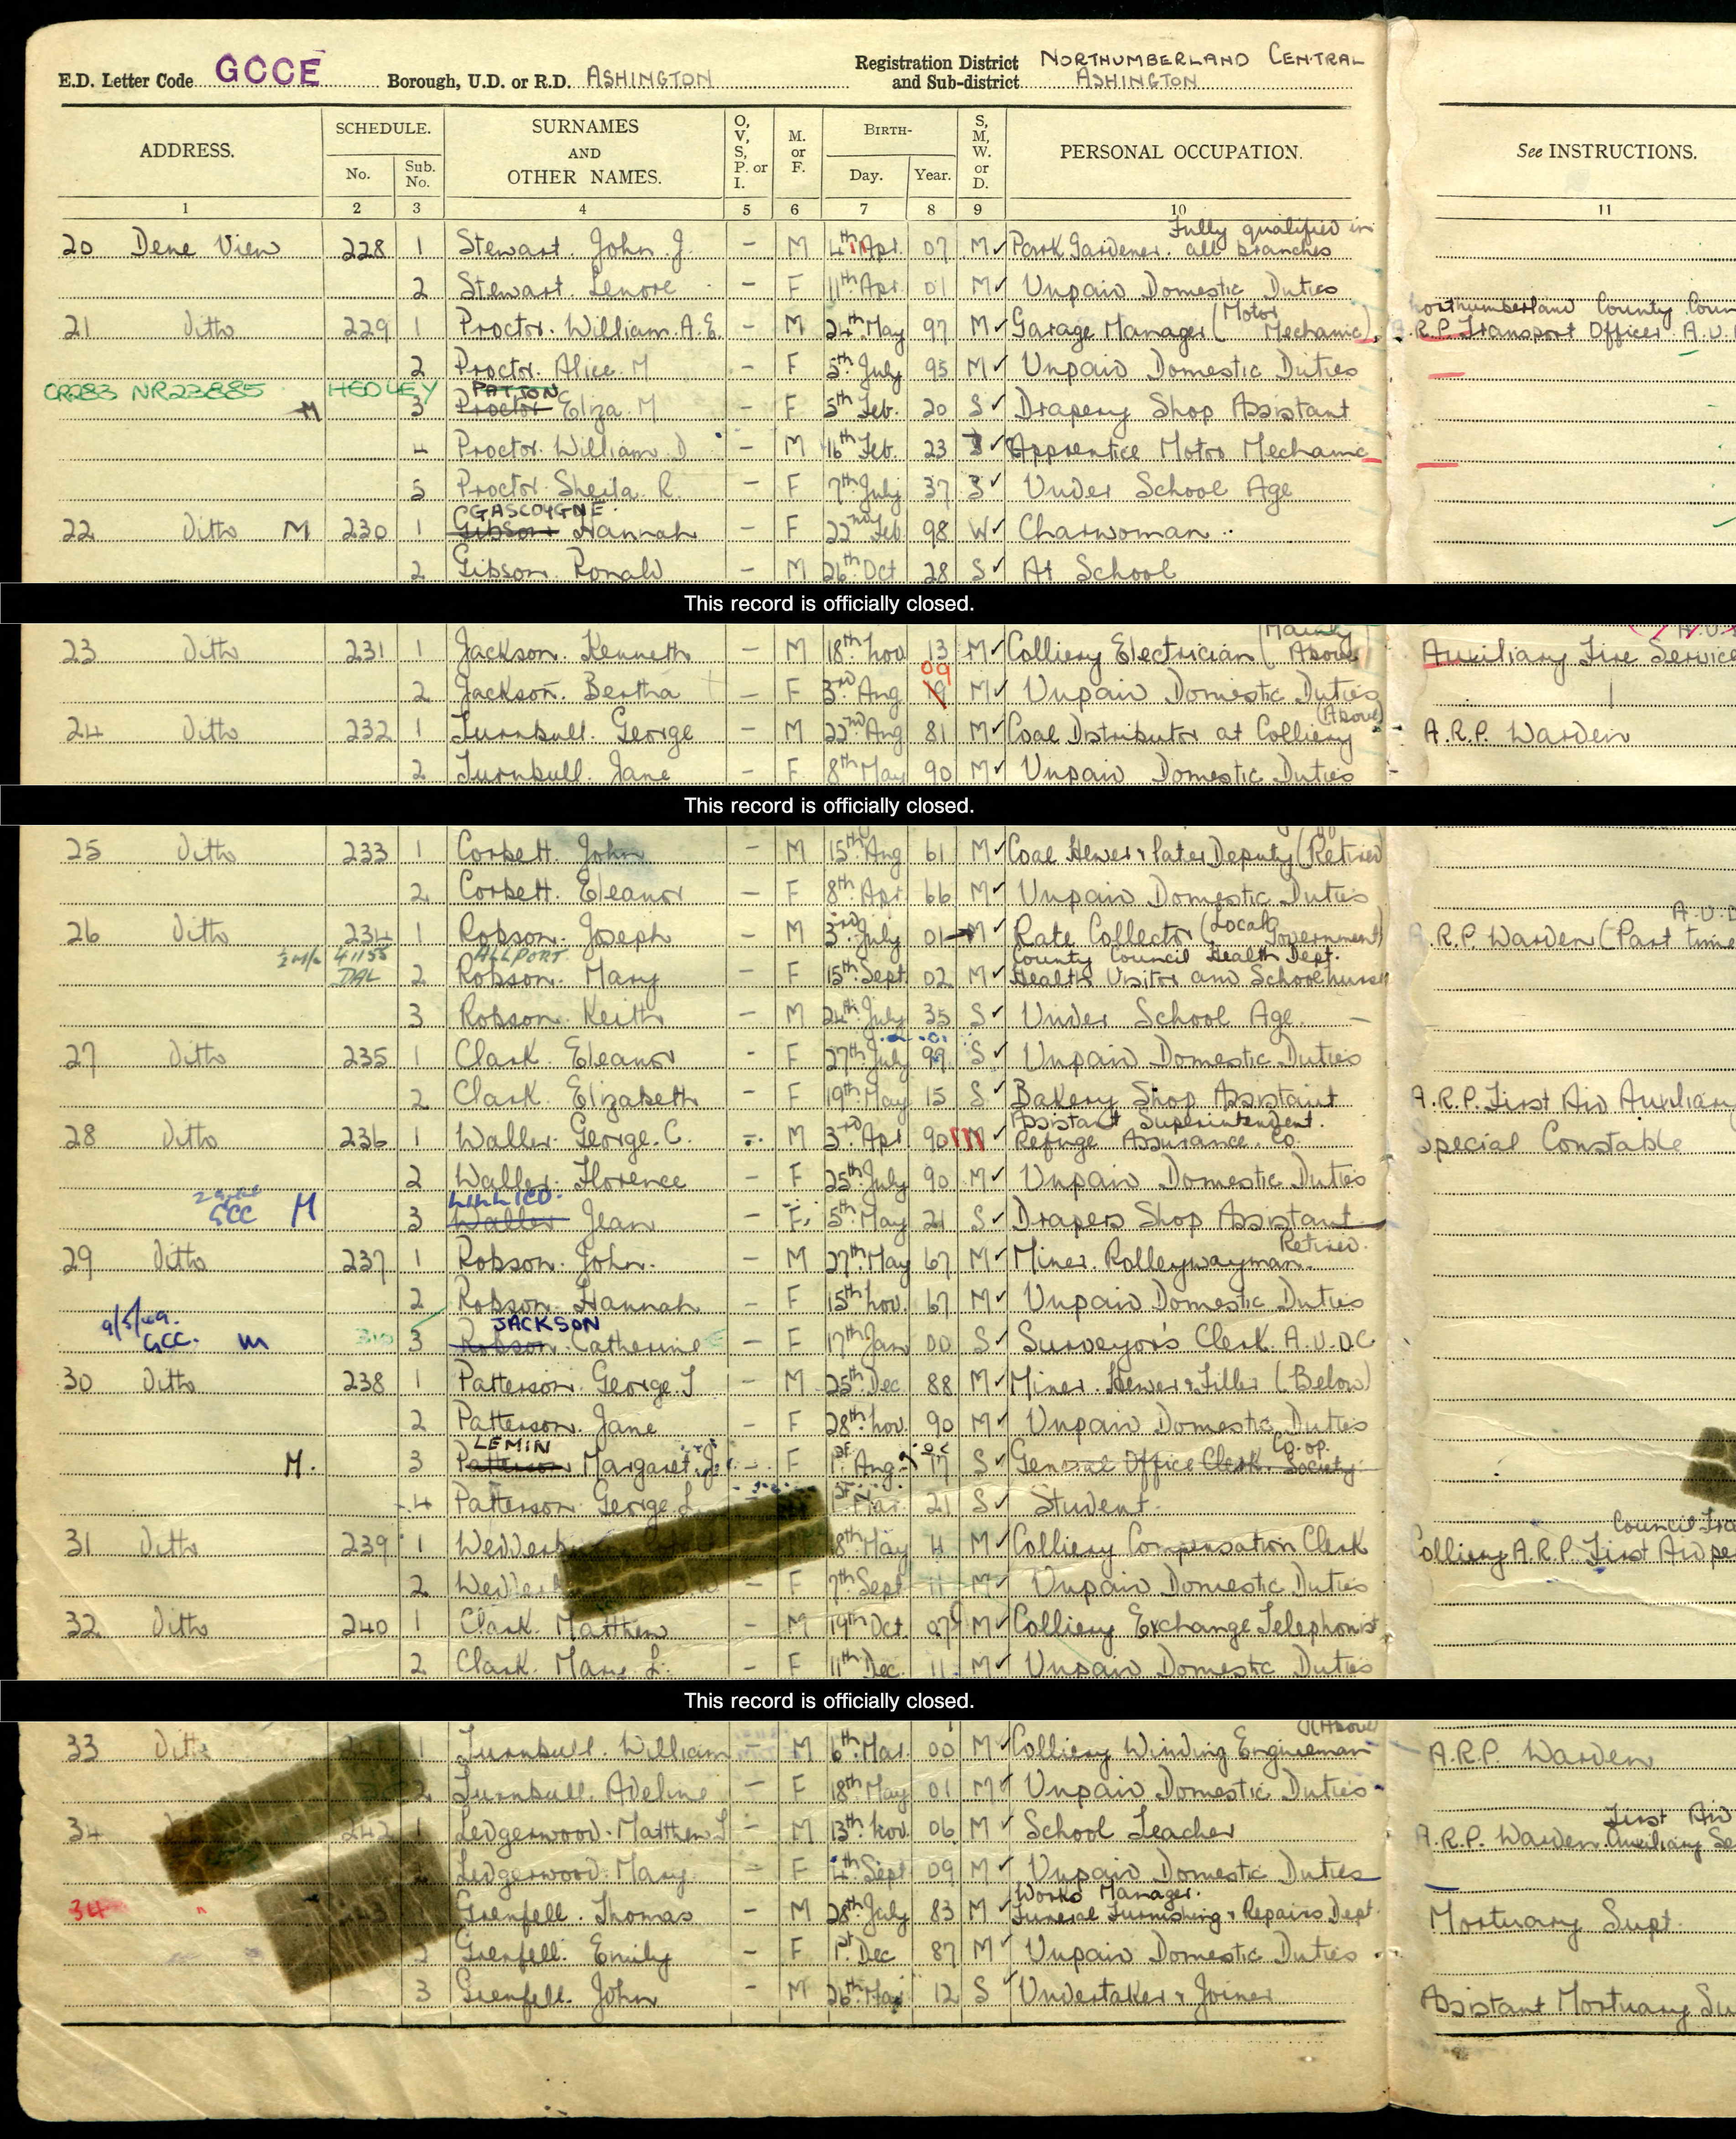 E.D. Letter Code GCCE Borough, U.D. or R.D. ASHINGTON Registration District and Sub-district NORTHUMBERLAND CENTRAL ASHINGTON
ADDRESS. SCHEDULE. No. Sub. No. SURNAMES AND OTHER NAMES. O, V, S, P. or I. M. or F. BIRTH- Day. Year. S, M, W. or D. PERSONAL OCCUPATION. See INSTRUCTIONS.
1 2 3 4 5 6 7 8 9 10 11
Fully qualified in
20 Dene View 228 1 Stewart. John. J. – M 4th Apr. 07 M ✓ Park Gardener. all branches
2 Stewart. Lenore – F 11th Apr 01 M ✓ Unpaid Domestic Duties
Northumberland County Coun
21 Ditto 229 1 Proctor. William. A. E. – M 24th May 97 M ✓ Garage Manager (Motor Mechanic) A.R.P. Transport Officer A.U.
2 Proctor. Alice. M – F 5th July 95 M ✓ Unpaid Domestic Duties
CR283 NR23885 HEDLEY PATTON
M 3 Proctor Eliza. M – F 5th Feb. 20 S ✓ Drapery Shop Assistant
4 Proctor. William. D – M 16th Feb. 23 S ✓ Apprentice Motor Mechanic
5 Proctor. Sheila. R. – F 7th July 37 S ✓ Under School Age
GASCOYGNE
22 Ditto M 230 1 Gibson Hannah – F 22nd Feb 98 W ✓ Charwoman
2 Gibson. Ronald – M 26th Oct 28 S ✓ At School
This record is officially closed.
23 Ditto 231 1 Jackson. Kenneth – M 18th Nov 13 M ✓ Colliery Electrician (Mainly Above) Auxiliary Fire Service
09
2 Jackson. Bertha – F 3rd Aug 19 M ✓ Unpaid Domestic Duties
24 Ditto 232 1 Turnbull. George – M 22nd Aug 81 M ✓ Coal Distributor at Colliery (Above) A.R.P. Warden
2 Turnbull. Jane – F 8th May 90 M ✓ Unpaid Domestic Duties
This record is officially closed.
25 Ditto 233 1 Corbett. John – M 15th Aug 61 M ✓ Coal Hewer & later Deputy (Retired
2 Corbett. Eleanor – F 8th Apr 66 M ✓ Unpaid Domestic Duties
26 Ditto 234 1 Robson. Joseph – M 3rd July 01 M ✓ Rate Collector (Local Government) A.R.P. Warden (Part time
41155 ALLPORT County Council Health Dept.
DAL 2 Robson. Mary – F 15th Sept 02 M ✓ Health Visitor and School nurse
3 Robson. Keith – M 24th July 35 S ✓ Under School Age. –
27 Ditto 235 1 Clark. Eleanor – F 27th July 99 S ✓ Unpaid Domestic Duties
2 Clark. Elizabeth – F 19th May 15 S ✓ Bakery Shop Assistant A.R.P. First Aid Auxiliary
Assistant Superintendent.
28 Ditto 236 1 Waller. George. C. – M 3rd Apr 90 M Refuge Assurance. Co. Special Constable
2 Waller. Florence – F 25th July 90 M ✓ Unpaid Domestic Duties
LILLICO.
GCC M 3 Waller Jean – F 5th May 21 S ✓ Drapers Shop Assistant
29 Ditto 237 1 Robson. John. – M 27th May 67 M ✓ Miner. Rolleywayman. Retired.
2 Robson. Hannah – F 15th Nov. 67 M ✓ Unpaid Domestic Duties
9/5/49. JACKSON
GCC. M 3 Robson. Catherine – F 17th Jan 00 S ✓ Surveyor's Clerk. A.U.D.C
30 Ditto 238 1 Patterson. George. T – M 25th Dec 88 M ✓ Miner. Hewer & Filler (Below)
2 Patterson. Jane – F 28th Nov. 90 M ✓ Unpaid Domestic Duties
LEMIN
M. 3 Patterson Margaret. J. F 1st Aug 17 S ✓ General Office Clerk. Co.op. Society
4 Patterson. George. L. 1st Mar. 21 S ✓ Student.
31 Ditto 239 1 18th May 11 M ✓ Colliery Compensation Clerk Colliery A.R.P. First Aid
2 F 7th Sept 11 M ✓ Unpaid Domestic Duties
32 Ditto 240 1 Clark. Matthew – M 19th Oct. 07 M ✓ Colliery Exchange Telephonist
2 Clark. Mary. L. – F 11th Dec. 11 M ✓ Unpaid Domestic Duties
This record is officially closed.
33 Ditto 1 Turnbull. William – M 6th Mar. 00 M ✓ Colliery Winding Engineman (Above A.R.P. Warden
2 Turnbull. Adeline – F 18th May 01 M ✓ Unpaid Domestic Duties
First Aid
34 242 1 Ledgerwood. Matthew T – M 13th Nov. 06 M ✓ School Teacher A.R.P. Warden. Auxiliary Se
Ledgerwood. Mary. – F 4th Sept 09 M ✓ Unpaid Domestic Duties
Works Manager.
34 " 243 Grenfell. Thomas – M 28th July 83 M ✓ Funeral Furnishing & Repairs Dept. Mortuary Supt.
2 Grenfell. Emily – F 1st Dec 87 M ✓ Unpaid Domestic Duties
3 Grenfell. John – M 26th Mar 12 S ✓ Undertaker & Joiner Assistant Mortuary Su